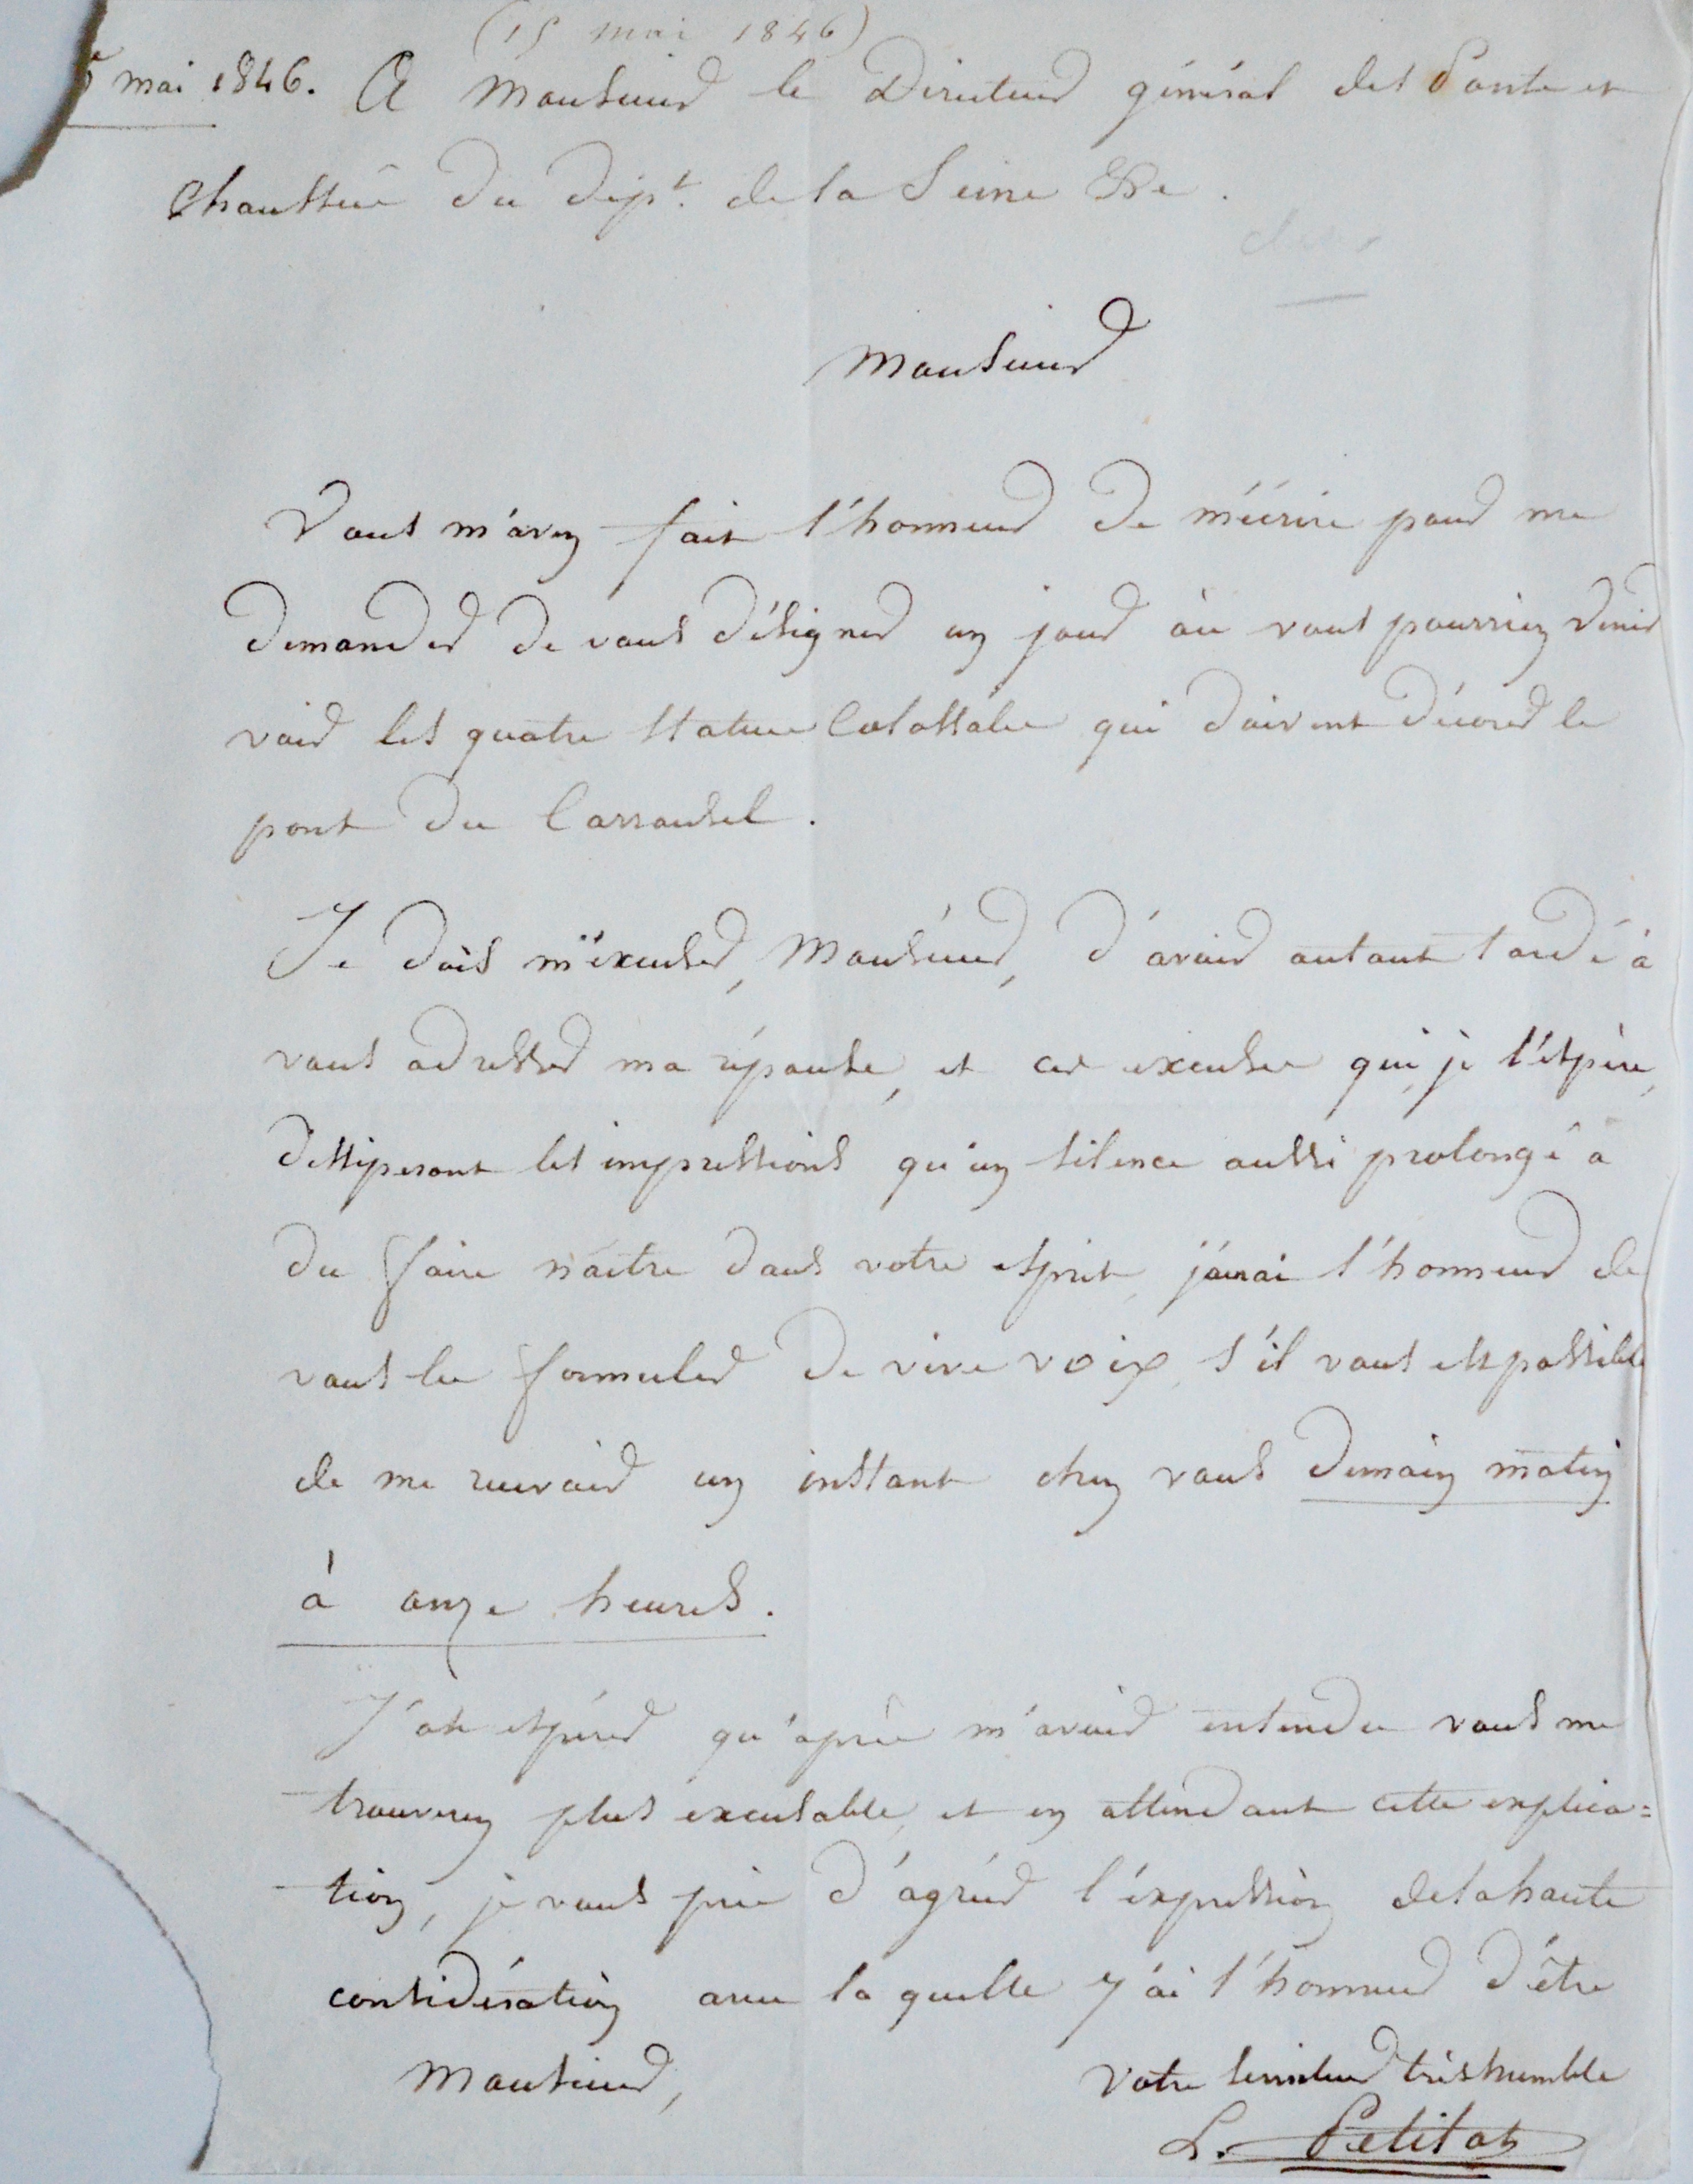 (15 mai 1846)
5 mai 1846. A Monsieur le Directeur général des Ponts et
Chaussées du dépt. de la Seine &&.
Monsieur
Vous m'avez fait l'honneur de m'écrire pour me
demander de vous désigner un jour où vous pourriez venir
voir les quatre statues Colossales qui doivent décorer le
pont du Carrousel.
Je dois m'éxcuser, Monsieur, d'avoir autant tardé à
vous adresser ma réponse, et ces excuses qui, je l'espère,
dissiperont les impressions qu'un silence aussi prolongé a
du faire naître dans votre esprit, j'aurai l'honneur de
vous les formuler de vive voix, s'il vous est possible
de me recevoir un instant chez vous demain matin
à onze heures.
J'ose espérer qu'après m'avoir entendu vous me
trouverez plus excusable, et en attendant cette explica=
tion, je vous prie d'agréer l'éxpression de la haute
considération avec la quelle j'ai l'honneur d'être
Monsieur,
Votre serviteur très humble
L. Petitot